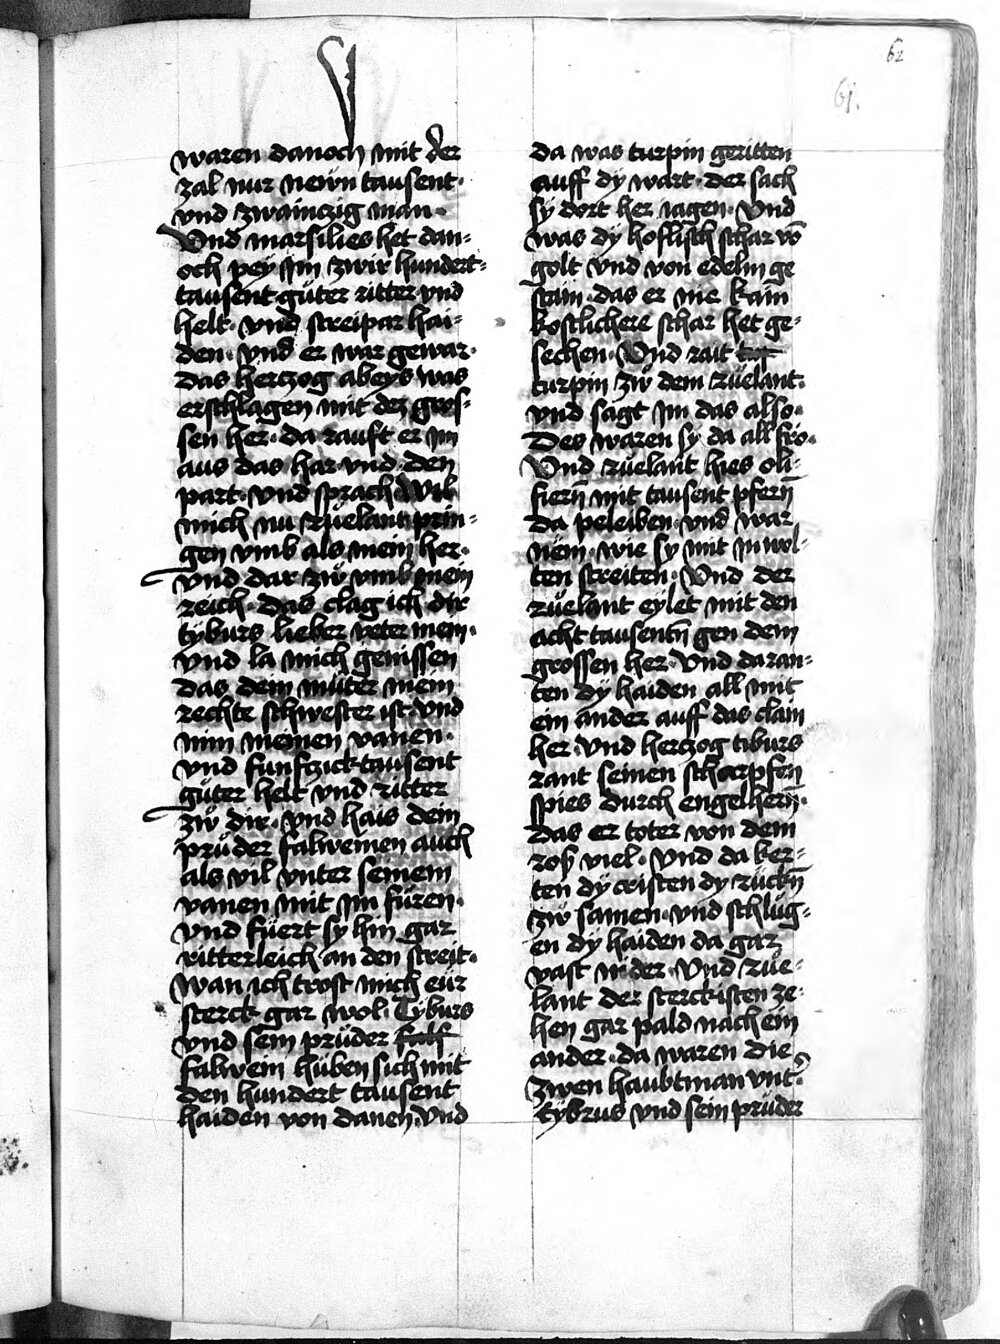 62
61.
waren danoch mit der
zal nur newn tausent·
vnd zwainczig man·
Vnd marsilies het dan=
och pey Im zwir hundert=
tausent güter ritter vnd
helt· vnd streipar hai=
den· vnd er war gewar·
das hertzog abeys was
erschlagen mit dez gros=
sen her· da rauft er im
aus das har vnd den
part· vnd sprach· Wil
mich nu Rüelant prin=
gen vmb als mein her·
vnd dar zẅ vmb mein
reich· das clag ich dir
tyburs lieber veter mein·
vnd la mich genissen
das dein müter mein
rechte schwester ist· vnd
nim meinen vanen·
vnd funfczick tausent
güter helt vnd ritter
zẅ dir· vnd hais dein
prüder falweinen auch
als vil vnter seinem
vanen mit im füren·
vnd füert sy hin gar
ritterleich an den streit·
wan ich trost mich eür
sterck gar wol· Tyburs
vnd sein prüder falf
falwein hüben sich mit
den hundert tausent
haiden von danen· Vnd
da was turpin geritten
auff dy wart· der sach
sy dort her iagen· Vnd
was dy hoflisch schar vō
golt vnd von edelm ge
stain· das er nie kain
kostlichere schar het ge=
sechen· Vnd rait tur
turpin zẅ dem rüelant·
vnd sagt im das also·
Des waren sy da all fro·
Vnd rüelant hies oli=
fiern̄ mit tausent pfern̄
da peleiben· vnd war
nëm· wie sy mit in wol=
ten streiten· Vnd der
rüelant eylet mit den
acht tausentn̄ gen dem
grossen her· Vnd daran=
ten dy haiden all mit
ein ander auff das clain
her· Vnd hertzog tiburs
rant seinen scharpfen
spies durch engelhern̄·
das er toter von dem
roß viel· Vnd da ker=
ten dy cristen dy rückn̄
zẅ samen· vnd schlüg=
en dy haiden da gar
vast nider· Vnd rüe=
lant der sterckisten ze=
hen gar pald nach ein
ander· da waren die
zwen haubtman vnt̄·
tybrus vnd sein prüder